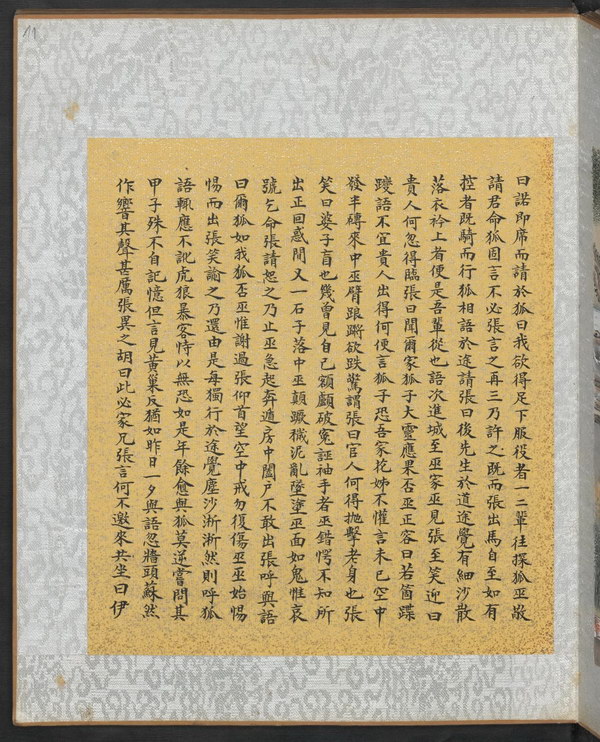 11
曰諾即席而請於狐曰我欲得足下服役者一二輩往探狐巫敬
請君命狐固言不必張言之再三乃許之既而張出馬自至如有
控者既騎而行狐相語於途請張曰後先生於道途覺有細沙散
落衣衿上者便是吾輩從也語次進城至巫家巫見張至笑迎曰
貴人何忽得臨張曰聞爾家狐子大靈應果否巫正容曰若箇蹀
躞語不宜貴人出得何便言狐子恐吾家花姊不懽言未已空中
發半磚來中巫臂踉蹡欲跌驚謂張曰官人何得拋擊老身也張
笑曰婆子盲也幾曾見自己額顱破寃誣袖手者巫錯愕不知所
出正回惑間又一石子落中巫顛蹶穢泥亂墜塗巫面如鬼惟哀
號乞命張請恕之乃止巫急起奔遁房中闔戶不敢出張呼與語
曰爾狐如我狐否巫惟謝過張仰首望空中戒勿復傷巫巫始惕
惕而出張笑諭之乃還由是每獨行於途覺塵沙淅淅然則呼狐
語輒應不訛虎狼暴客恃以無恐如是年餘愈與狐莫逆嘗問其
甲子殊不自記憶但言見黃巢反猶如昨日一夕與語忽牆頭蘇然
作響其聲甚厲張異之胡曰此必家兄張言何不邀來共坐曰伊